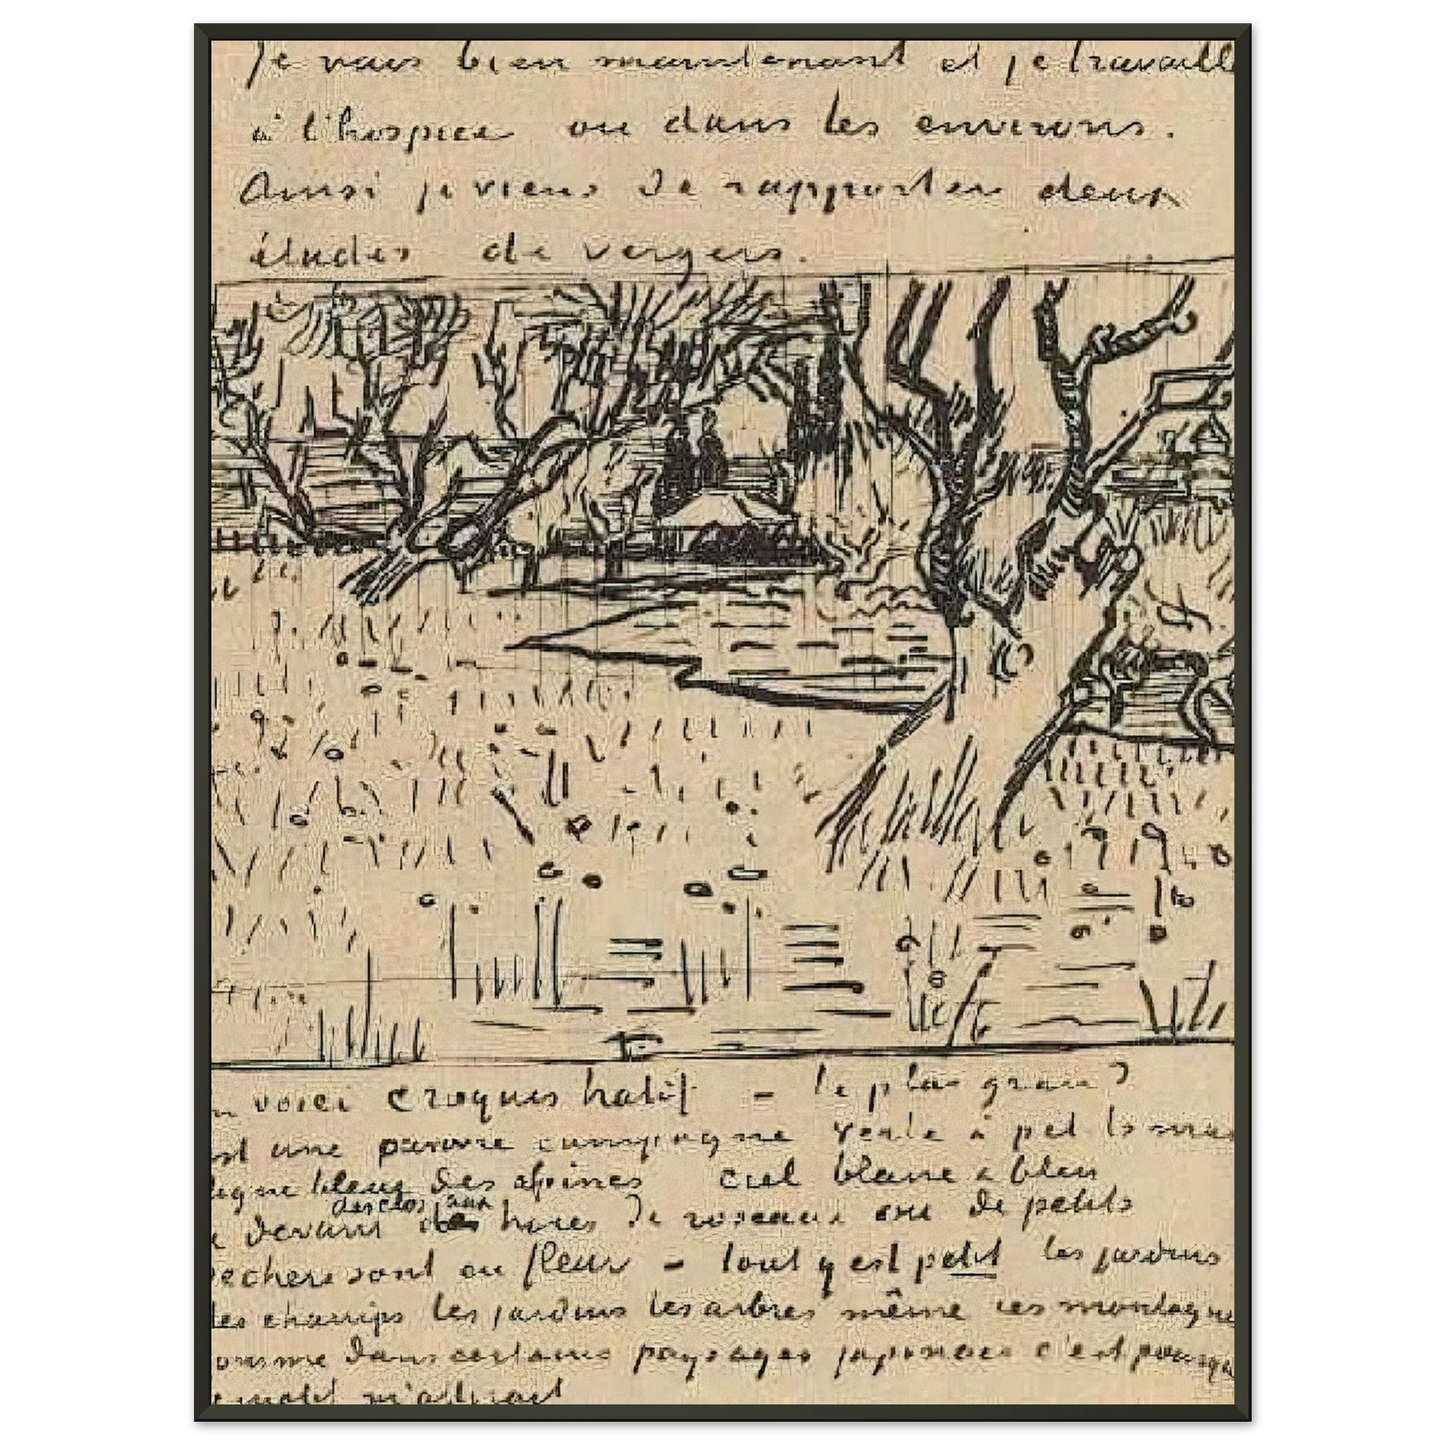 Je vais bien maintenant et je travaille
à l'hospice ou dans les environs.
Ainsi je viens de rapporter deux
études de vergers.
voici croquis hatif – le plus grand
est une pauvre campagne verte à pet
ligne bleue des alpines ciel blanc & bleu
des clos aux
devant des haies de roseaux ou de petits
pechers sont en fleur – tout y est petit les jardins
les champs les jardins les arbres même ces montagnes
comme dans certains paysages japonais c'est pourquoi
m'attirait